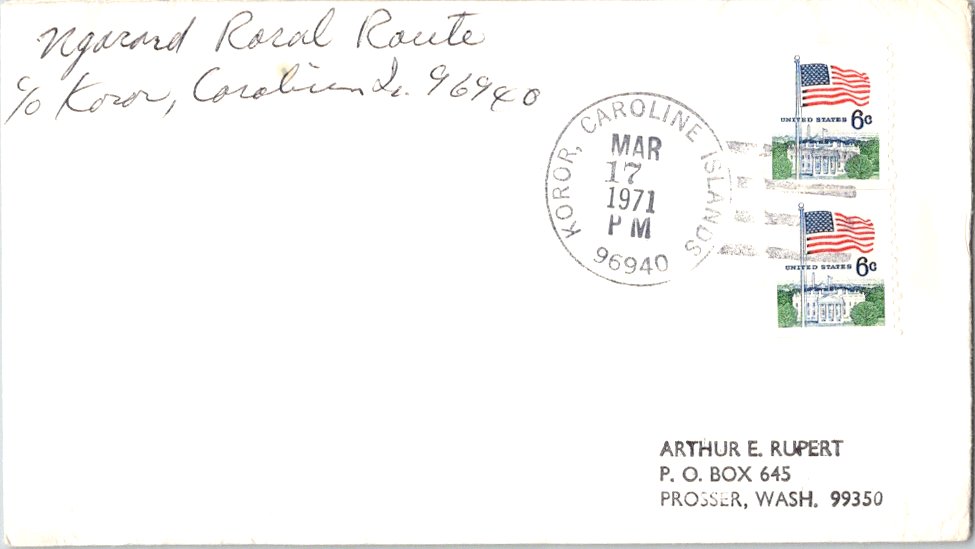 Ngarard Rural Route
c/o Koror, Caroline Is. 96940
KOROR, CAROLINE ISLANDS
MAR
17
1971
PM
96940
UNITED STATES 6c
UNITED STATES 6c
ARTHUR E. RUPERT
P. O. BOX 645
PROSSER, WASH. 99350